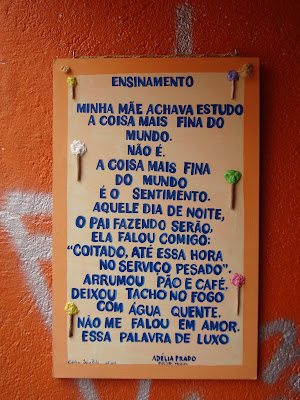 ENSINAMENTO
MINHA MÃE ACHAVA ESTUDO
A COISA MAIS FINA DO
MUNDO.
NÃO É.
A COISA MAIS FINA
DO MUNDO
É O SENTIMENTO.
AQUELE DIA DE NOITE,
O PAI FAZENDO SERÃO,
ELA FALOU COMIGO:
"COITADO, ATÉ ESSA HORA
NO SERVIÇO PESADO".
ARRUMOU PÃO E CAFÉ,
DEIXOU TACHO NO FOGO
COM ÁGUA QUENTE.
NÃO ME FALOU EM AMOR.
ESSA PALAVRA DE LUXO
ADÉLIA PRADO